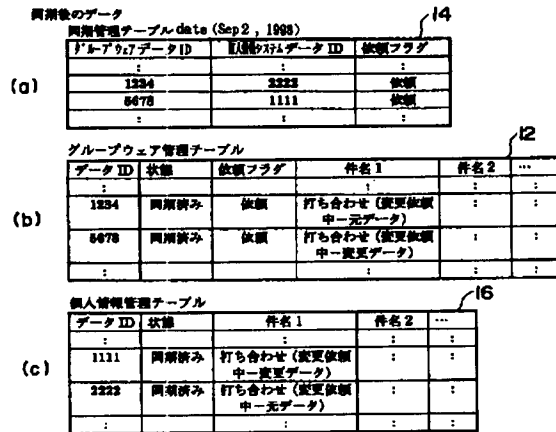 同期後のデータ
同期管理テーブル date (Sep 2, 1998)
14
グループウェアデータID 個人情報システムデータ ID 依頼フラグ
: : :
(a)
1234 2222 依頼
5678 1111 依頼
: : :
グループウェア管理テーブル
12
データ ID 状態 依頼フラグ 件名 1 件名 2 …
: : : :
(b)
1234 同期済み 依頼 打ち合わせ (変更依頼 : :
中ー元データ)
5678 同期済み 依頼 打ち合わせ (変更依頼 : :
中ー変更データ)
: : :
個人情報管理テーブル
16
データ ID 状態 件名 1 件名 2 …
: : : :
(c)
1111 同期済み 打ち合わせ (変更依頼 : :
中ー変更データ)
2222 同期済み 打ち合わせ (変更依頼 : :
中ー元データ)
: : : :